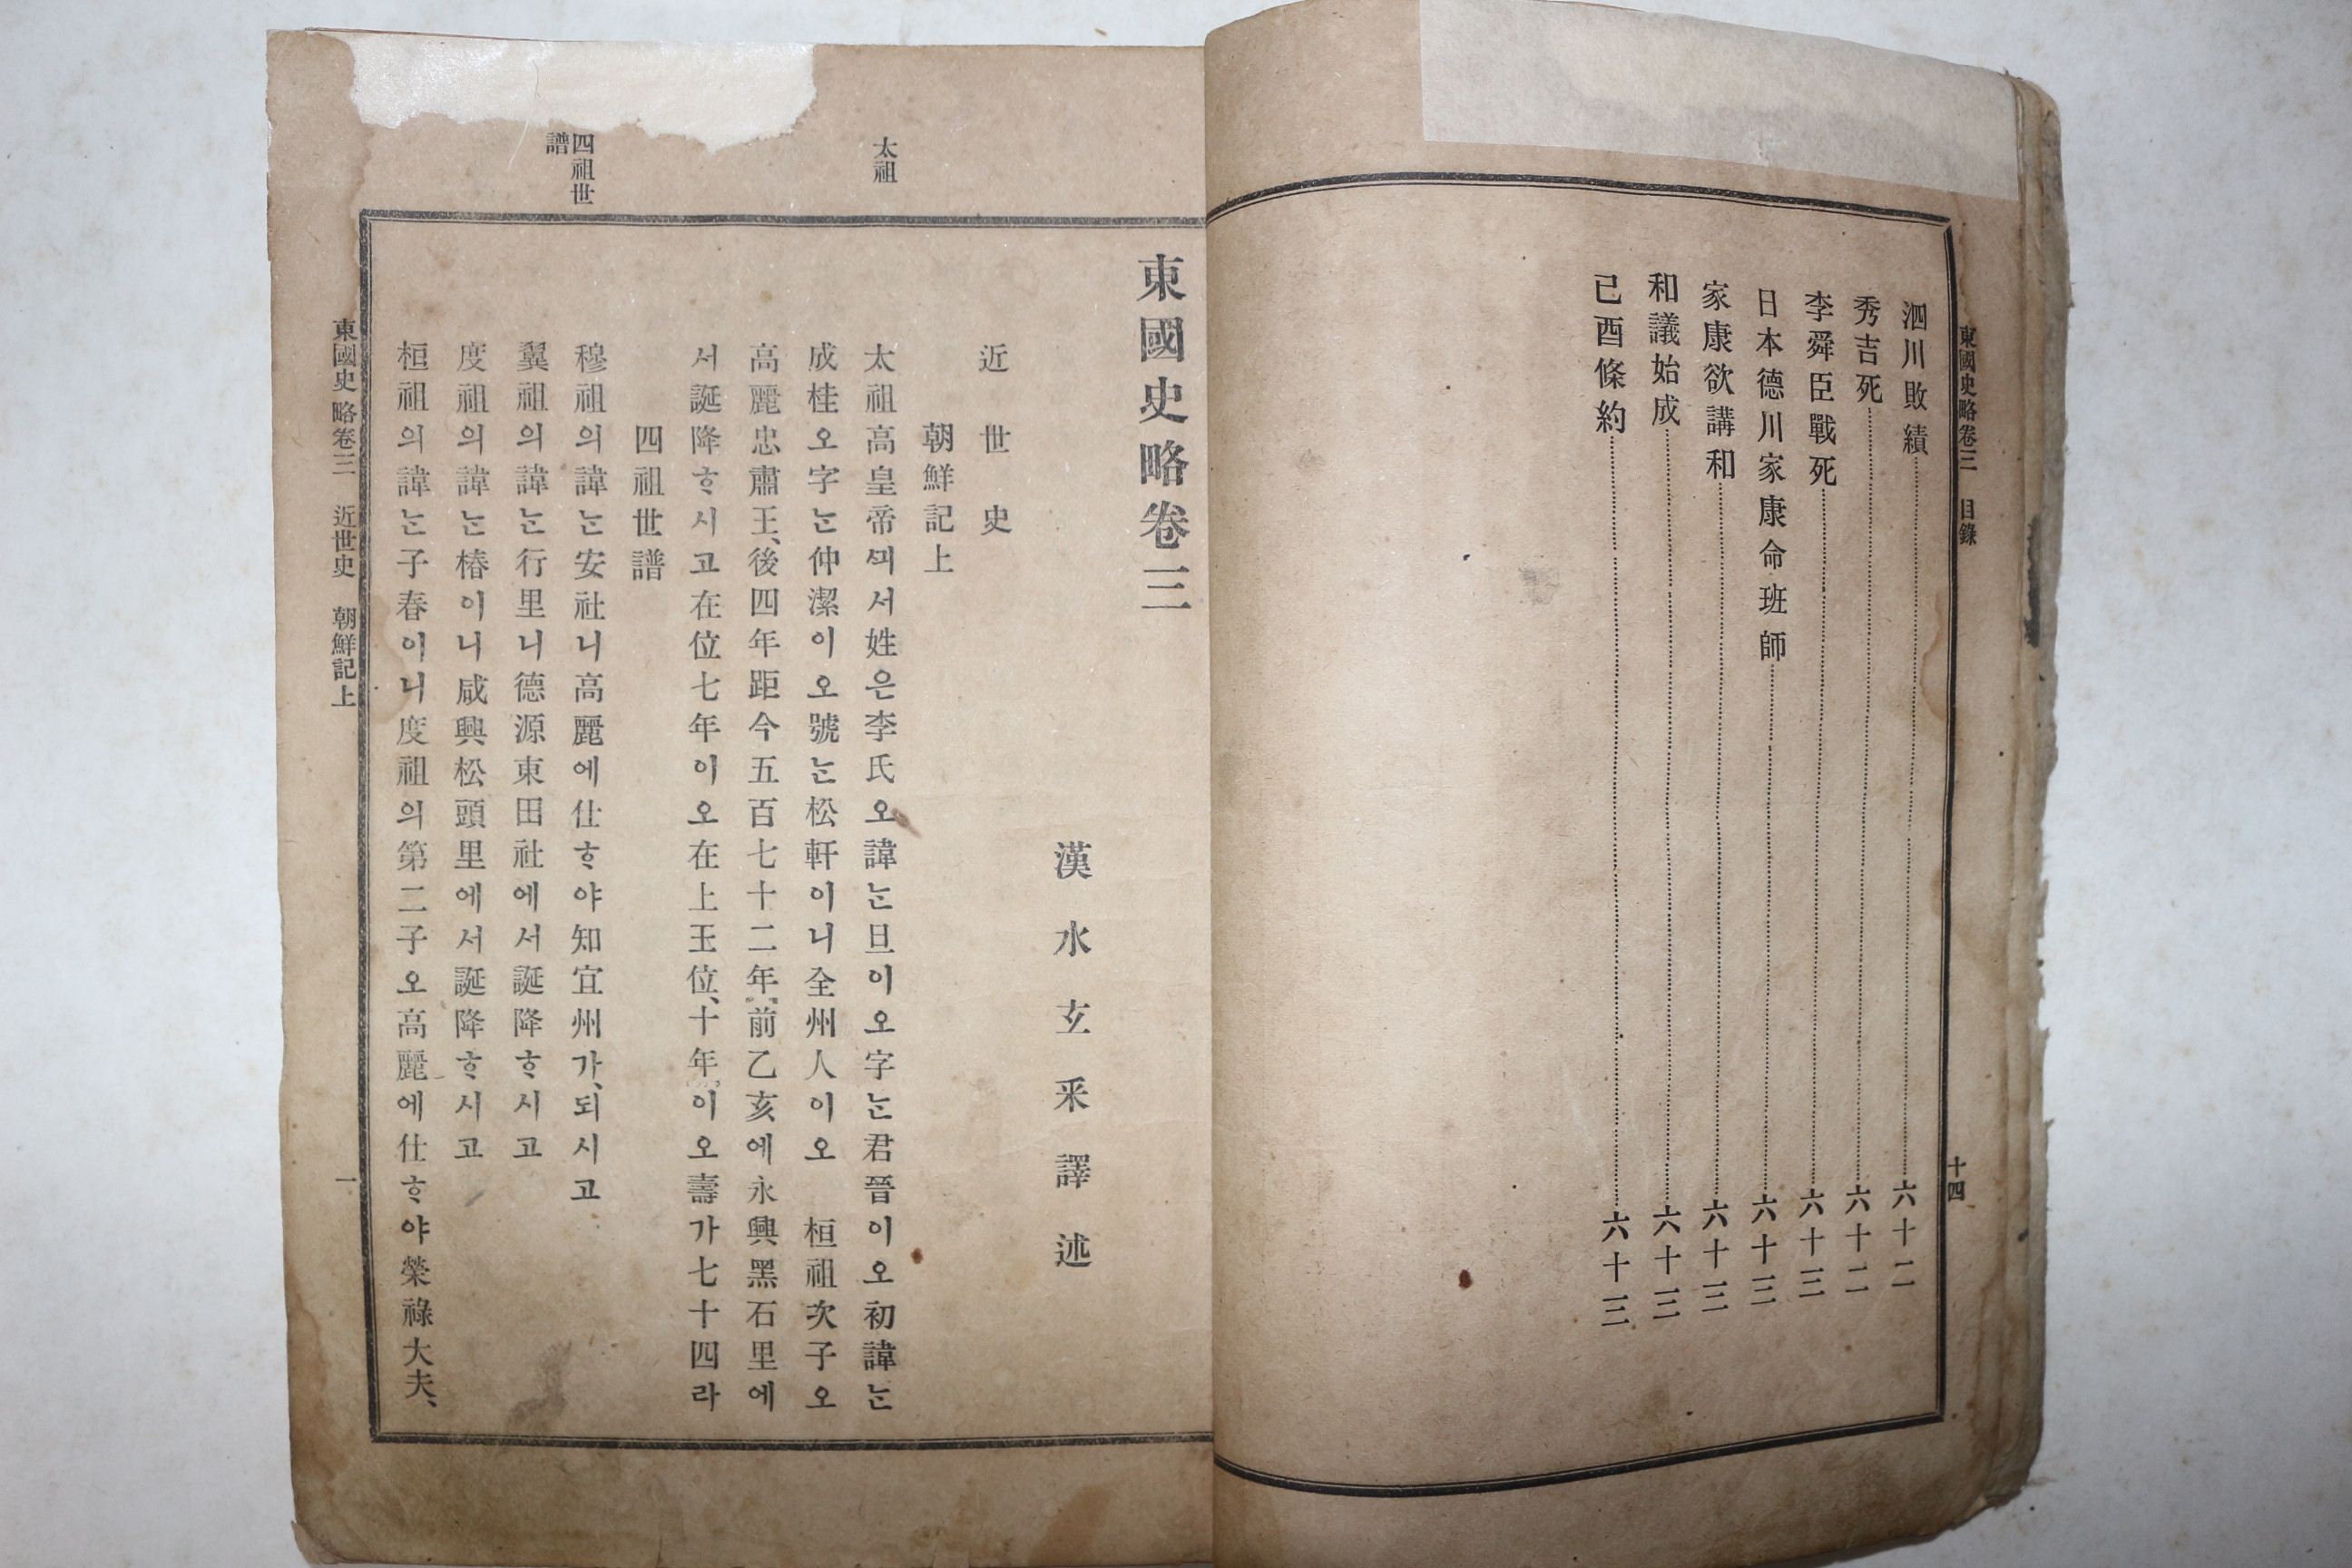 東國史略卷三 目錄
十四
泗川敗績 六十二
秀吉死 六十二
李舜臣戰死 六十三
日本德川家康命班師 六十三
家康欲講和 六十三
和議始成 六十三
己酉條約 六十三
東國史略卷三
漢水玄采譯述
近世史
朝鮮記上
太祖
太祖高皇帝ᄭᅴ서姓은李氏오諱ᄂᆞᆫ旦이오字ᄂᆞᆫ君晉이오初諱ᄂᆞᆫ
成桂오字ᄂᆞᆫ仲潔이오號ᄂᆞᆫ松軒이니全州人이오 桓祖次子오
高麗忠肅王、後四年距今五百七十二年前乙亥에永興黑石里에
서誕降ᄒᆞ시고在位七年이오在上王位、十年이오壽가七十四라
四祖世
譜
四祖世譜
穆祖의諱ᄂᆞᆫ安社니高麗에仕ᄒᆞ야知宜州가、되시고
翼祖의諱ᄂᆞᆫ行里니德源東田社에서誕降ᄒᆞ시고
度祖의諱ᄂᆞᆫ椿이니咸興松頭里에서誕降ᄒᆞ시고
桓祖의諱ᄂᆞᆫ子春이니度祖의第二子오高麗에仕ᄒᆞ야榮祿大夫、
東國史略卷三 近世史 朝鮮記上
一